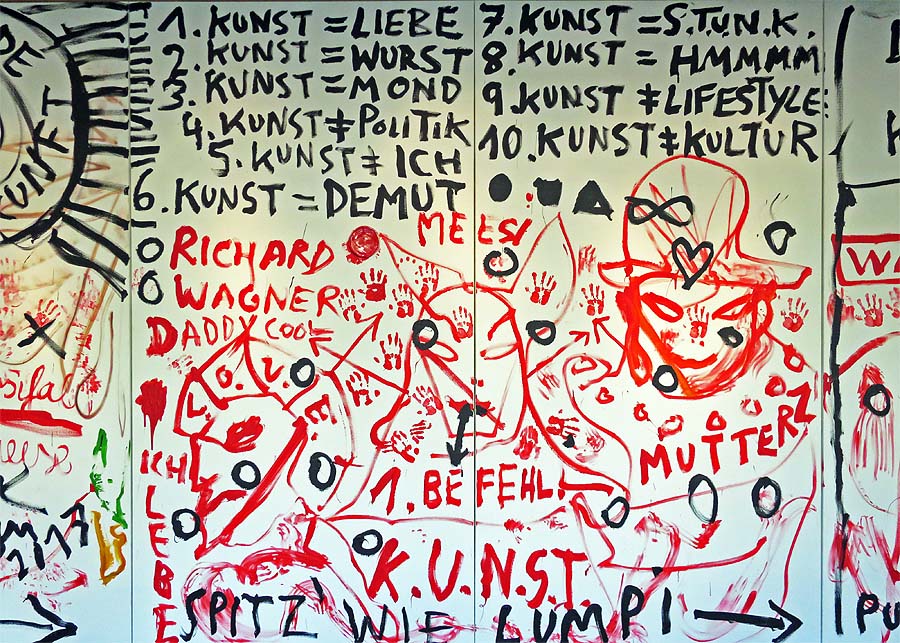 1. KUNST = LIEBE
2. KUNST = WURST
3. KUNST = MOND
4. KUNST ≠ POLITIK
5. KUNST ≠ ICH
6. KUNST = DEMUT
7. KUNST = S.T.U.N.K.
8. KUNST = HMMMM
9. KUNST ≠ LIFESTYLE:
10. KUNST ≠ KULTUR
MEESE
RICHARD
WAGNER
DADDY COOL
L.O.V.E.
ICH
LEBE
MUTTERZ
1. BEFEHL:
K.U.N.S.T.
SPITZ' WIE LUMPI
UNKT
sifal
WA
PU